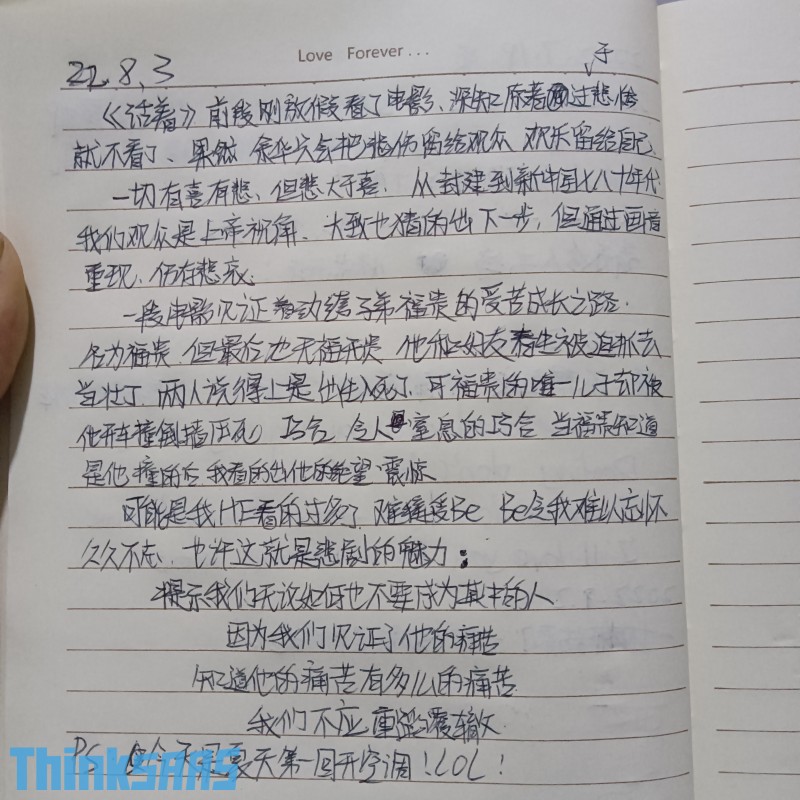 Love Forever...
22.8.3
于
《活着》前段刚放假看了电影、深知原著过悲惨
就不看了、果然 余华只会把悲伤留给观众 欢乐留给自己
一切有喜有悲、但悲大于喜. 从封建到新中国七八十年代
我们观众是上帝视角、大致也猜的出下一步, 但通过画音
重现, 仍有悲哀.
一段电影见证着纨绔子弟福贵的受苦成长之路.
名为福贵, 但最后也无福无贵 他和好友春生被迫抓去
当壮丁 两人说得上是出生入死了, 可福贵的唯一儿子却被
他开车撞倒墙压死) 巧合 令人窒息的巧合 当福贵知道
是他撞的后 我看的出他的绝望 震惊
可能是我HE看的过多了 难接受Be Be令我难以忘怀
久久不忘, 也许这就是悲剧的魅力;
提示我们无论如何也不要成为其中的人
因为我们见证了他的痛苦
知道他的痛苦有多么的痛苦
我们不应重蹈覆辙.
PS 今天是夏天第一回开空调!LOL!
ThinkSAAS